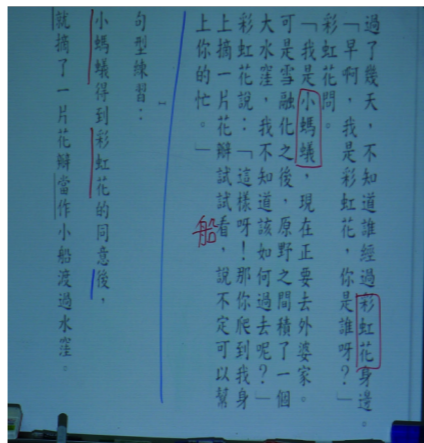 過了幾天，不知道誰經過彩虹花身邊。
「早啊，我是彩虹花，你是誰呀？」
彩虹花問。
「我是小螞蟻，現在正要去外婆家。
可是雪融化之後，原野之間積了一個
大水窪，我不知道該如何過去呢？」
彩虹花說：「這樣呀！那你爬到我身
上摘一片花瓣試試看，說不定可以幫
船
上你的忙。」
句型練習：
小螞蟻得到彩虹花的同意後，
就摘了一片花瓣當作小船渡過水窪。